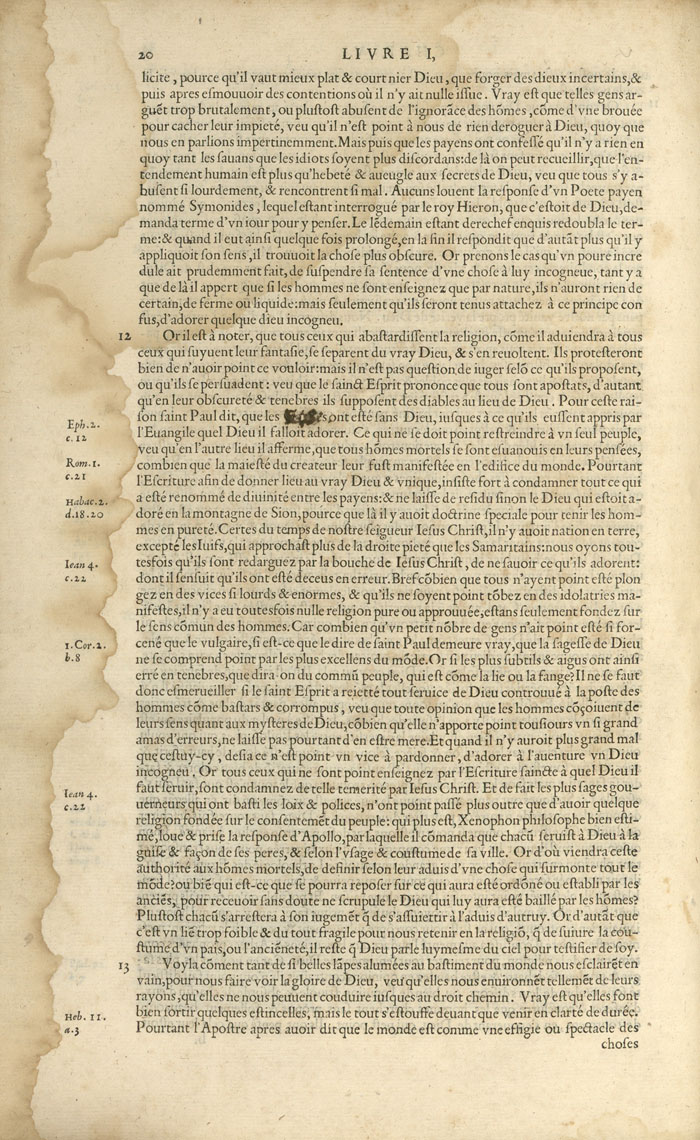 20 LIVRE I,
licite, pource qu'il vaut mieux plat & court nier Dieu, que forger des dieux incertains, &
puis apres esmouuoir des contentions où il n'y ait nulle issue. Vray est que telles gens ar-
guẽt trop brutalement, ou plustost abusent de l'ignorãce des hõmes, cõme d'vne brouée
pour cacher leur impieté, veu qu'il n'est point à nous de rien deroguer à Dieu, quoy que
nous en parlions impertinemment. Mais puis que les payens ont confessé qu'il n'y a rien en
quoy tant les sauans que les idiots soyent plus discordans: de là on peut recueillir, que l'en-
tendement humain est plus qu'hebeté & aueugle aux secrets de Dieu, veu que tous s'y a-
busent si lourdement, & rencontrent si mal. Aucuns louent la response d'vn Poete payen
nommé Symonides, lequel estant interrogué par le roy Hieron, que c'estoit de Dieu, de-
manda terme d'vn iour pour y penser. Le lẽdemain estant derechef enquis redoubla le ter-
me: & quand il eut ainsi quelque fois prolongé, en la fin il respondit que d'autãt plus qu'il y
appliquoit son sens, il trouuoit la chose plus obscure. Or prenons le cas qu'vn poure incre
dule ait prudemment fait, de suspendre sa sentence d'vne chose à luy incogneue, tant y a
que de là il appert que si les hommes ne sont enseignez que par nature, ils n'auront rien de
certain, de ferme ou liquide: mais seulement qu'ils seront tenus attachez à ce principe con
fus, d'adorer quelque dieu incogneu.
12 Or il est à noter, que tous ceux qui abastardissent la religion, cõme il aduiendra à tous
ceux qui suyuent leur fantasie, se separent du vray Dieu, & s'en reuoltent. Ils protesteront
bien de n'auoir point ce vouloir: mais il n'est pas question de iuger selõ ce qu'ils proposent,
ou qu'ils se persuadent: veu que le sainct Esprit prononce que tous sont apostats, d'autant
qu'en leur obscureté & tenebres ils supposent des diables au lieu de Dieu. Pour ceste rai-
Eph. 2. son saint Paul dit, que les ont esté sans Dieu, iusques à ce qu'ils eussent appris par
c. 12 l'Euangile quel Dieu il falloit adorer. Ce qui ne se doit point restreindre à vn seul peuple,
veu qu'en l'autre lieu il afferme, que tous hõmes mortels se sont esuanouis en leurs pensées,
Rom. 1. combien que la maiesté du createur leur fust manifestée en l'edifice du monde. Pourtant
c. 21 l'Escriture afin de donner lieu au vray Dieu & vnique, insiste fort à condamner tout ce qui
Habac. 2. a esté renommé de diuinité entre les payens: & ne laisse de residu sinon le Dieu qui estoit a-
d. 18. 20 doré en la montagne de Sion, pource que là il y auoit doctrine speciale pour tenir les hom-
mes en pureté. Certes du temps de nostre seigueur Iesus Christ, il n'y auoit nation en terre,
excepté les Iuifs, qui approchast plus de la droite pieté que les Samaritains: nous oyons tou-
Iean 4. tesfois qu'ils sont redarguez par la bouche de Iesus Christ, de ne sauoir ce qu'ils adorent:
c. 22 dont il sensuit qu'ils ont esté deceus en erreur. Bref cõbien que tous n'ayent point esté plon
gez en des vices si lourds & enormes, & qu'ils ne soyent point tõbez en des idolatries ma-
nifestes, il n'y a eu toutesfois nulle religion pure ou approuuée, estans seulement fondez sur
le sens cõmun des hommes. Car combien qu'vn petit nõbre de gens n'ait point esté si for-
1. Cor. 2. cené que le vulgaire, si est-ce que le dire de saint Paul demeure vray, que la sagesse de Dieu
b. 8 ne se comprend point par les plus excellens du mõde. Or si les plus subtils & aigus ont ainsi
erré en tenebres, que dira-on du commũ peuple, qui est cõme la lie ou la fange? Il ne se faut
donc esmerueiller si le saint Esprit a reietté tout seruice de Dieu controuué à la poste des
hommes cõme bastars & corrompus, veu que toute opinion que les hommes cõçoiuent de
leurs sens quant aux mysteres de Dieu, cõbien qu'elle n'apporte point tousiours vn si grand
amas d'erreurs, ne laisse pas pourtant d'en estre mere. Et quand il n'y auroit plus grand mal
que cestuy-cy, desia ce n'est point vn vice à pardonner, d'adorer à l'auenture vn Dieu
incogneu. Or tous ceux qui ne sont point enseignez par l'Escriture saincte à quel Dieu il
Iean 4. faut seruir, sont condamnez de telle temerité par Iesus Christ. Et de fait les plus sages gou-
c. 22 uerneurs qui ont basti les loix & polices, n'ont point passé plus outre que d'auoir quelque
religion fondée sur le consentemẽt du peuple: qui plus est, Xenophon philosophe bien esti-
mé, loue & prise la response d'Apollo, par laquelle il cõmanda que chacũ seruist à Dieu à la
guise & façon de ses peres, & selon l'vsage & coustume de sa ville. Or d'où viendra ceste
authorité aux hõmes mortels, de definir selon leur aduis d'vne chose qui surmonte tout le
mõde? ou biẽ qui est-ce que se pourra reposer sur ce qui aura esté ordõné ou establi par les
anciẽs, pour receuoir sans doute ne scrupule le Dieu qui luy aura esté baillé par les hõmes?
Plustost chacũ s'arrestera à son iugemẽt q̃ de s'assuiettir à l'aduis d'autruy. Or d'autãt que
c'est vn liẽ trop foible & du tout fragile pour nous retenir en la religiõ, q̃ de suiure la cou-
stume d'vn pais, ou l'anciẽneté, il reste q̃ Dieu parle luymesme du ciel pour testifier de soy.
13 Voyla cõment tant de si belles lãpes alumées au bastiment du monde nous esclairẽt en
vain, pour nous faire voir la gloire de Dieu, veu qu'elles nous enuironnẽt tellemẽt de leurs
rayons, qu'elles ne nous peuuent couduire iusques au droit chemin. Vray est qu'elles font
Heb. 11. bien sortir quelques estincelles, mais le tout s'estouffe deuant que venir en clarté de durée.
a. 3 Pourtant l'Apostre apres auoir dit que le monde est comme vne effigie ou spectacle des
choses